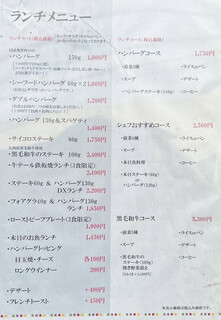 ランチメニュー
・ハンバーグ 150g 1,000円
・シーフードハンバーグ 60g×2 1,000円
・ダブルハンバーグ
1,200円
・ハンバーグ130g&スパゲティ
1,400円
・サイコロステーキ 80g 1,750円
・黒毛和牛のステーキ 100g 2,400円
・牛テール鉄板焼ランチ(3食限定)
・ステーキ60g & ハンバーグ130g
DXランチ 2,200円
・フォアグラ40g & ハンバーグ130g
ランチ 1,850円
・ローストビーフプレート(3食限定)
1,900円
・本日のお魚ランチ 1,450円
・ハンバーグトッピング
目玉焼・チーズ 各100円
ロングウインナー 200円
・デザート +400円
・フレンチトースト +450円
ハンバーグコース 1,750円
・前菜1種 ・ライスorパン
・スープ ・デザート
・ハンバーグステーキ(140g) ・コーヒー
シェフおすすめコース 2,500円
・ライスorパン
・スープ ・デザート
・本日魚料理 ・コーヒー
・本日ステーキ
or
ハンバーグ
黒毛和牛コース 3,300円
・ライスorパン
・スープ ・デザート
・黒毛和牛の ・コーヒー
ステーキ
焼き野菜添え